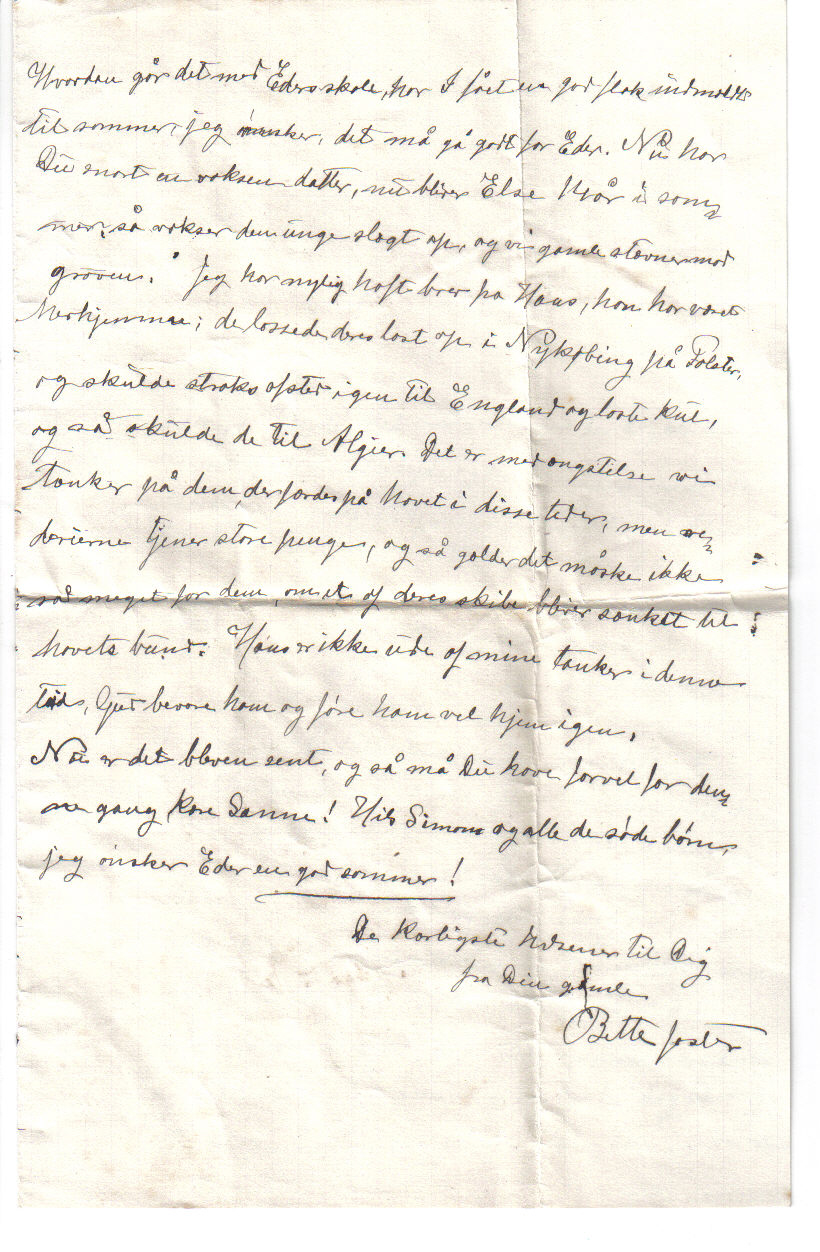 Hvordan går det med Eders skole, har I fået en god flok indmeldt
til sommer, jeg ønsker, det må gå godt for Eder. Nu har
Du snart en voksen datter, nu bliver Else 14 år i som=
mer, så vokser den unge slægt op, og vi gamle stævner mod
graven. Jeg har nylig haft brev fra Hans, han har været
herhjemme; de lossede deres last op i Nykøbing på Falster,
og skulde straks afsted igen til England og laste kul,
og så skulde de til Algier. Det er med ængstelse vi
tænker på dem, der færdes på havet i disse tider, men re=
derierne tjener store penge, og så gælder det måske ikke
så meget for dem, om et af deres skibe bliver sænket til
havets bund. Hans er ikke ude af mine tanker i denne
tid, Gud bevare ham og føre ham vel hjem igen.
Nu er det bleven sent, og så må Du have farvel for den=
ne gang kære Sanne! Hils Simon og alle de søde børn,
jeg ønsker Eder en god sommer!
De kærligste hilsener til Dig
fra Din gamle
Bette faster